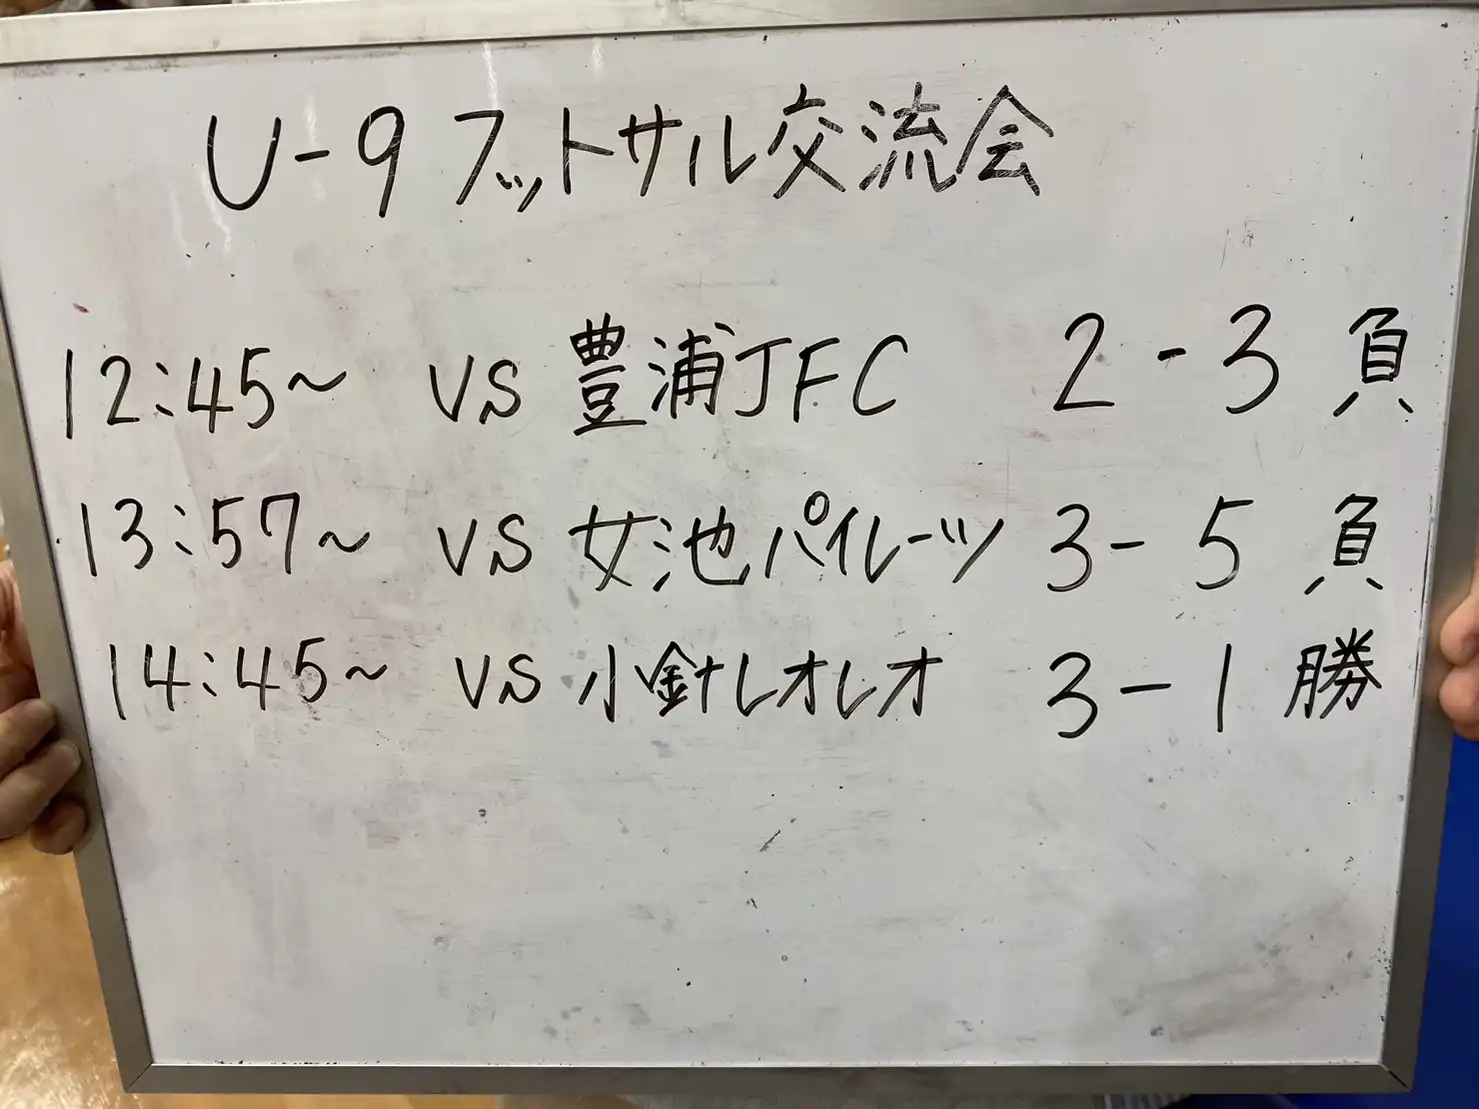 U-9 フットサル交流会
12:45~ VS 豊浦JFC 2-3 負
13:57~ VS 女池パイレーツ 3-5 負
14:45~ VS 小針レオレオ 3-1 勝